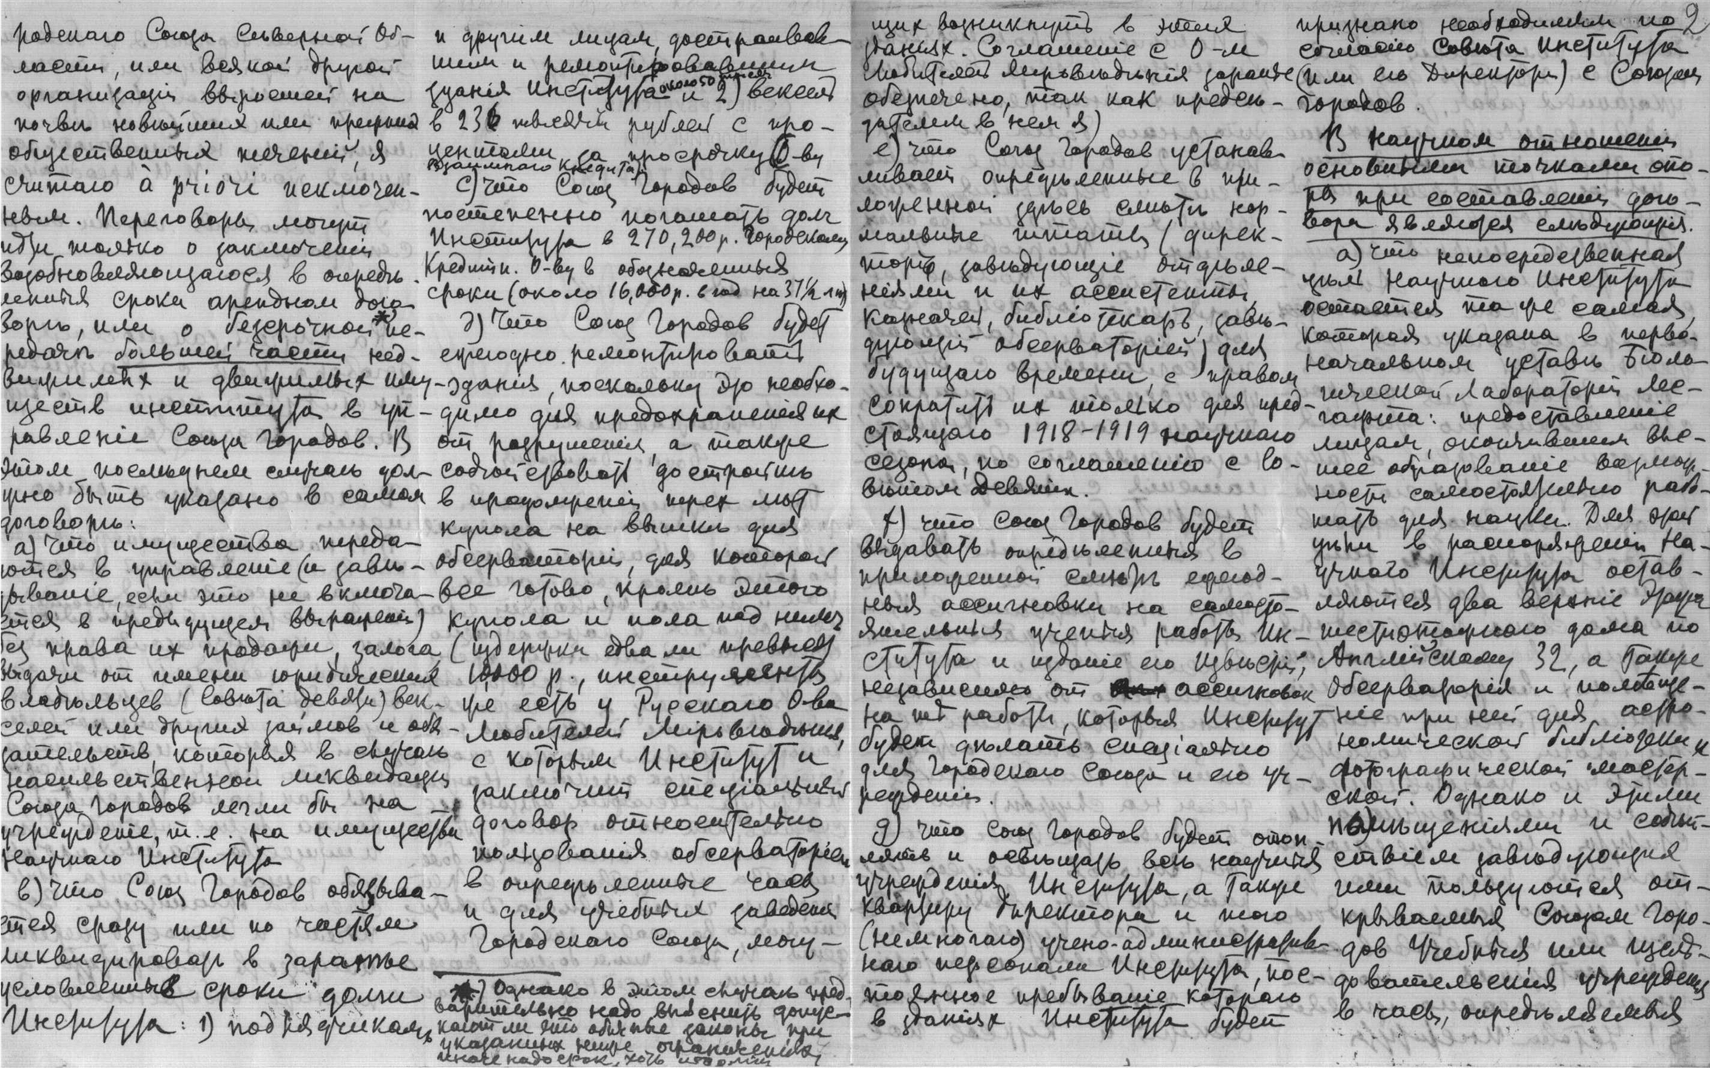 родскаго Союза Сѣверной Об-
ласти, или всякой другой
организаціи выросшей на
почвѣ новѣйших или прежних
общественных теченій, я
считаю à priori исключен-
ным. Переговоры могут
идти только о заключеніи
возобновляющагося в опредѣ-
ленные сроки аренднаго дого-
вора, или о безсрочной *) пе-
редачѣ большей части нед-
вижимых и движимых иму-
ществ института в уп-
равленіе Союза Городов. В
этом послѣднем случаѣ дол-
жно быть указано в самом
договорѣ:
а) Что имущества переда-
ются в управленіе (и завѣ-
дываніе, если это не включа-
ется в предыдущем выраженіи)
без права их продажи, залога
выдачи от имени юридических
владѣльцев (Совѣта девяти) век-
селей или других займов и обя-
зательств, которыя в случаѣ
насильственной ликвидаціи
Союза Городов легли бы на
учрежденіе, т.е. на имущества
Научнаго Института
в) Что Союз Городов обязыва-
ется сразу или по частям
ликвидировать в заранѣе
условленные сроки долги
Института: 1) подрядчикам
и другим лицам, достраивав-
шим и ремонтировавшим
зданія Института около 50 тысяч и 2) вексель
в 236 тысячи рублей с про-
центами за просрочку О-ву
взаимнаго кредита
с) Что Союз Городов будет
постепенно погашать долг
Института в 270,200 р. Городскому
Кредитн. О-ву в обозначенные
сроки (около 16,000 р. в год на 37 1/2 лѣт)
д) Что Союз Городов будет
ежегодно ремонтировать
зданія, поскольку это необхо-
димо для предохраненія их
от разрушенія, а также
содѣйствовать достроить
в продолженіи трех лѣт
купола на вышкѣ для
обсерваторіи, для которой
все готово, кромѣ этого
купола и пола под ним
(издержки едва ли превысят
10000 р., инструменты
уже есть у Русскаго О-ва
Любителей Міровѣдѣнія,
с которым Институт и
заключит спеціальный
договор относительно
пользованія обсерваторіей
в опредѣленные часы
и для учебных заведеній
Городскаго Союза, могу-
*) Однако в этом случаѣ пред-
варительно надо выяснить допус-
кают ли это общіе законы при
указанных ниже ограниченіях,
иначе надо срок, хоть и долгій
2
щих возникнуть в этих
зданіях. Соглашеніе с О-м
Любителей Міровѣдѣнія заранѣе
обезпечено, так как предсѣ-
дателем в нем я)
е) что Союз Городов устанав-
ливает опредѣленные в при-
ложенной здѣсь смѣтѣ нор-
мальные штаты (дирек-
тор, завѣдующіе отдѣле-
ніями и их ассистенты,
казначей, библіотекарь, завѣ-
дующій обсерваторіей) для
будущаго времени, с правом
сократить их только для пред-
стоящаго 1918-1919 научнаго
сезона, по соглашенію с Со-
вѣтом девяти.
f) что Союз Городов будет
выдавать опредѣленныя в
приложенной смѣтѣ ежегод-
ныя ассигновки на самосто-
ятельныя ученыя работы Ин-
ститута и изданіе его Извѣстій,
независимо от ассигновок
на тѣ работы, которыя Институт
будет дѣлать спеціально
для Городскаго Союза и его уч-
режденій.
g) что Союз Городов будет отоп-
лять и освѣщать всѣ научныя
учрежденія Института, а также
квартиру директора и того
(немногаго) учено-административ-
наго персонала Института, пос-
тоянное пребываніе котораго
в зданіях Института будет
признано необходимым по
согласію Совѣта Института
(или его Директора) с Союзом
городов.
В научном отношеніи
основными точками опо-
ры при составленіи дого-
вора являются слѣдующія.
а) Что непосредственная
цѣль Научнаго Института
остается та же самая,
которая указана в перво-
начальном уставѣ Біоло-
гической Лабораторіи Лес-
гафта: предоставленіе
лицам, окончившим выс-
шее образованіе возмож-
ности самостоятельно рабо-
тать для науки. Для этой
цѣли в распоряженіи На-
учнаго Института остав-
ляются два верхніе этажа
шестиэтажнаго дома по
Англійскому 32, а также
Обсерваторія и помѣще-
ніе при ней для астро-
номической библіотеки и
фотографической мастер-
ской. Однако и этими
помѣщеніями и содѣй-
ствіем завѣдующих
ими пользуются от-
крываемыя Союзом Горо-
дов Учебныя или изслѣ-
довательскія учрежденія
в часы, опредѣляемые